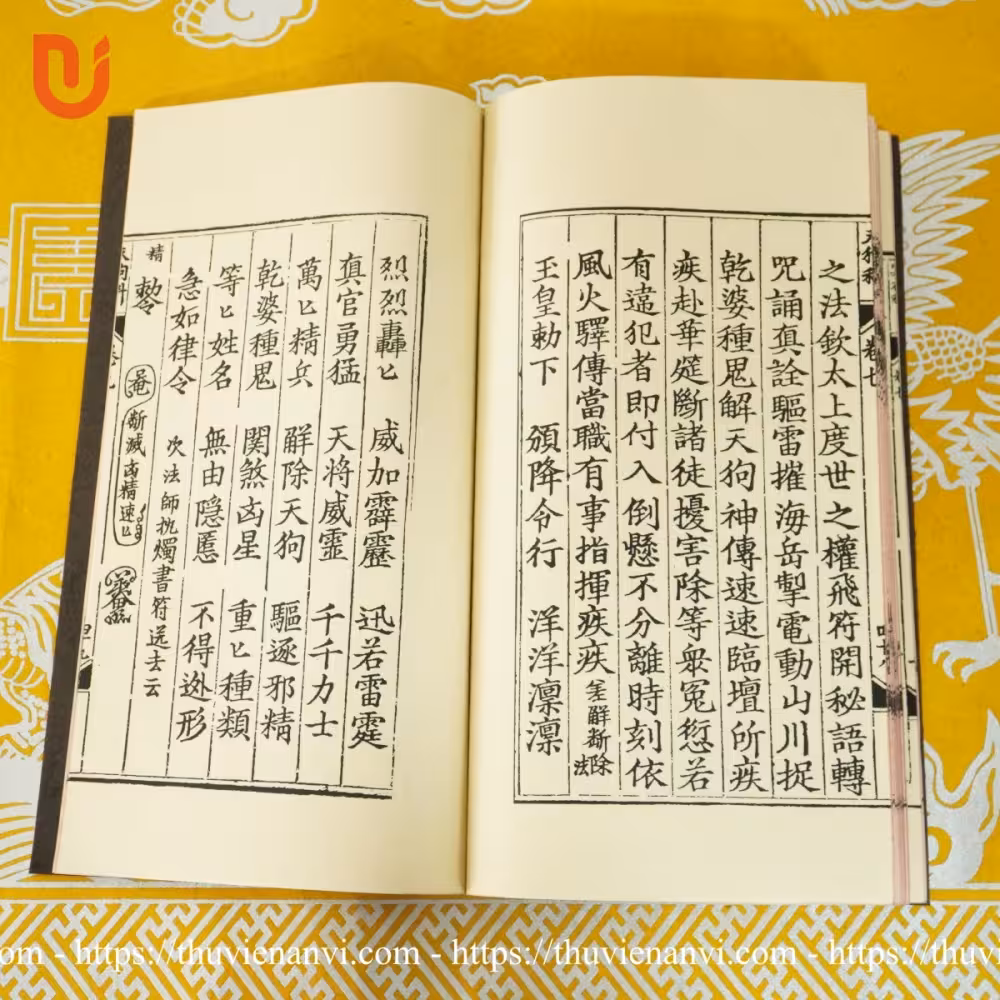 天狗科 卷七
之法欽太上度世之權飛符開秘語轉
咒誦眞詮驅雷摧海岳掣電動山川捉
乾婆種鬼解天狗神傳速速臨壇所疾
疾赴華筵斷諸徒擾害除等眾冤愆若
有違犯者即付入倒懸不分離時刻依
風火驛傳當職有事指揮疾疾
玉皇勅下 頒降令行 洋洋凛凛
烈烈轟匕 威加霹靂 迅若雷霆
眞官勇猛 天将威靈 千千力士
萬匕精兵 觧除天狗 驅逐邪精
乾婆種鬼 関煞凶星 重匕種類
等匕姓名 無由隱慝 不得迯形
急如律令 次法師执燭書符送去云
精
唵 斬滅 精速匕
https://thuvienanvi.com - https://thuvienanvi.com - https://thuvienanvi.com